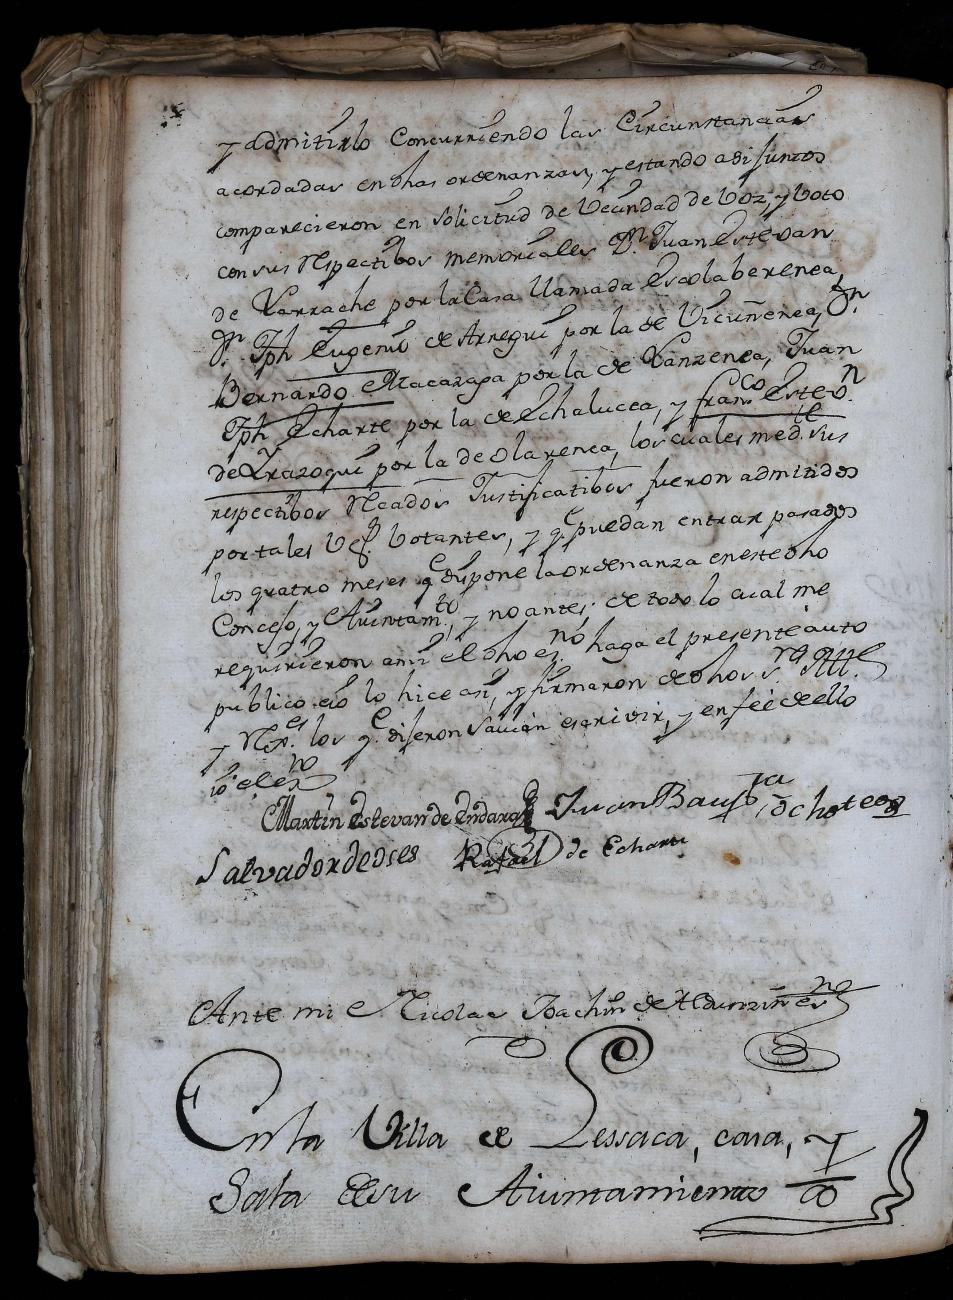 y admitirlo Concurriendo las Circunstancias
acordadas en dhas ordenanzas, y estando asi juntos
comparecieron en solicitud de Vecindad de Voz, y Voto
con sus respectibos memoriales Dn. Juan Estevan
de Yarrache por la Casa llamada Escolaberenea,
Dn. Jph Eugenio de Arregui por la de Vicuñenea, Dn.
Bernardo por la de Yanzenea, Juan
Jph Echarte por la de Echalucea, y franco. Esteon.
de Yrazoqui por la de olarenea, los cuales medte. sus
respectibos Recados Justificatibos fueron admitidos
por tales Vos. Votantes, y qe puedan entrar pasados
los quatro meses qe dispone la ordenanza en este dho
Concejo, y Aiuntamto., y no antes; de todo lo cual me
requirieron a mi el dho esno haga el presente auto
publico eio lo hice asi, y firmaron de dhos Sres Alles
y Rexes. los qe. dijeron savian escrivir, y en feé de ello
io el esno
Martin Estevan de Endara Juan Bauptta. dehoteos
Salvador de oses Rafael de Echarte
Ante mi Nicolas Joachin de Aldunzin esno
En la Villa de Lessaca, casa, y
Sala de su Aiuntamiento